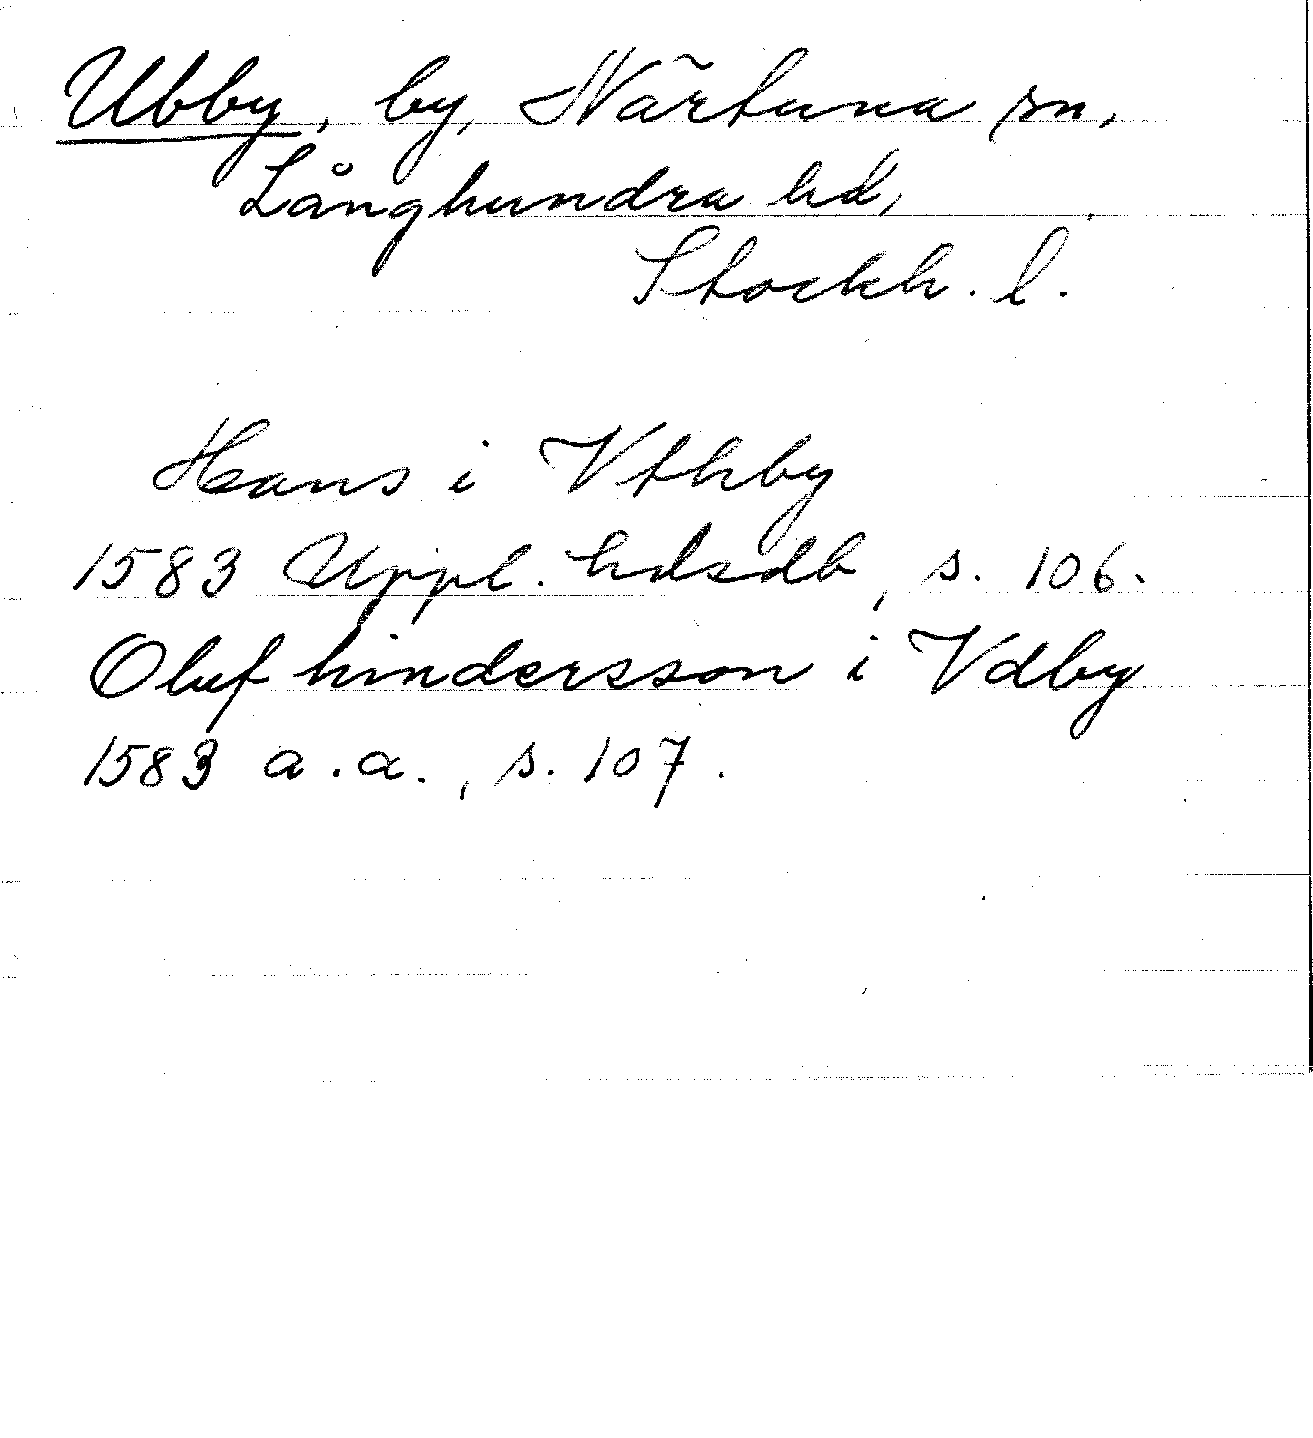 Ubby, by, Närtuna sn,
Långhundra hd,
Stockh. l.
Hans i Vthby
1583 Uppl. hdsdb, s. 106.
Oluf hindersson i Vdby
1583 a.a., s. 107.